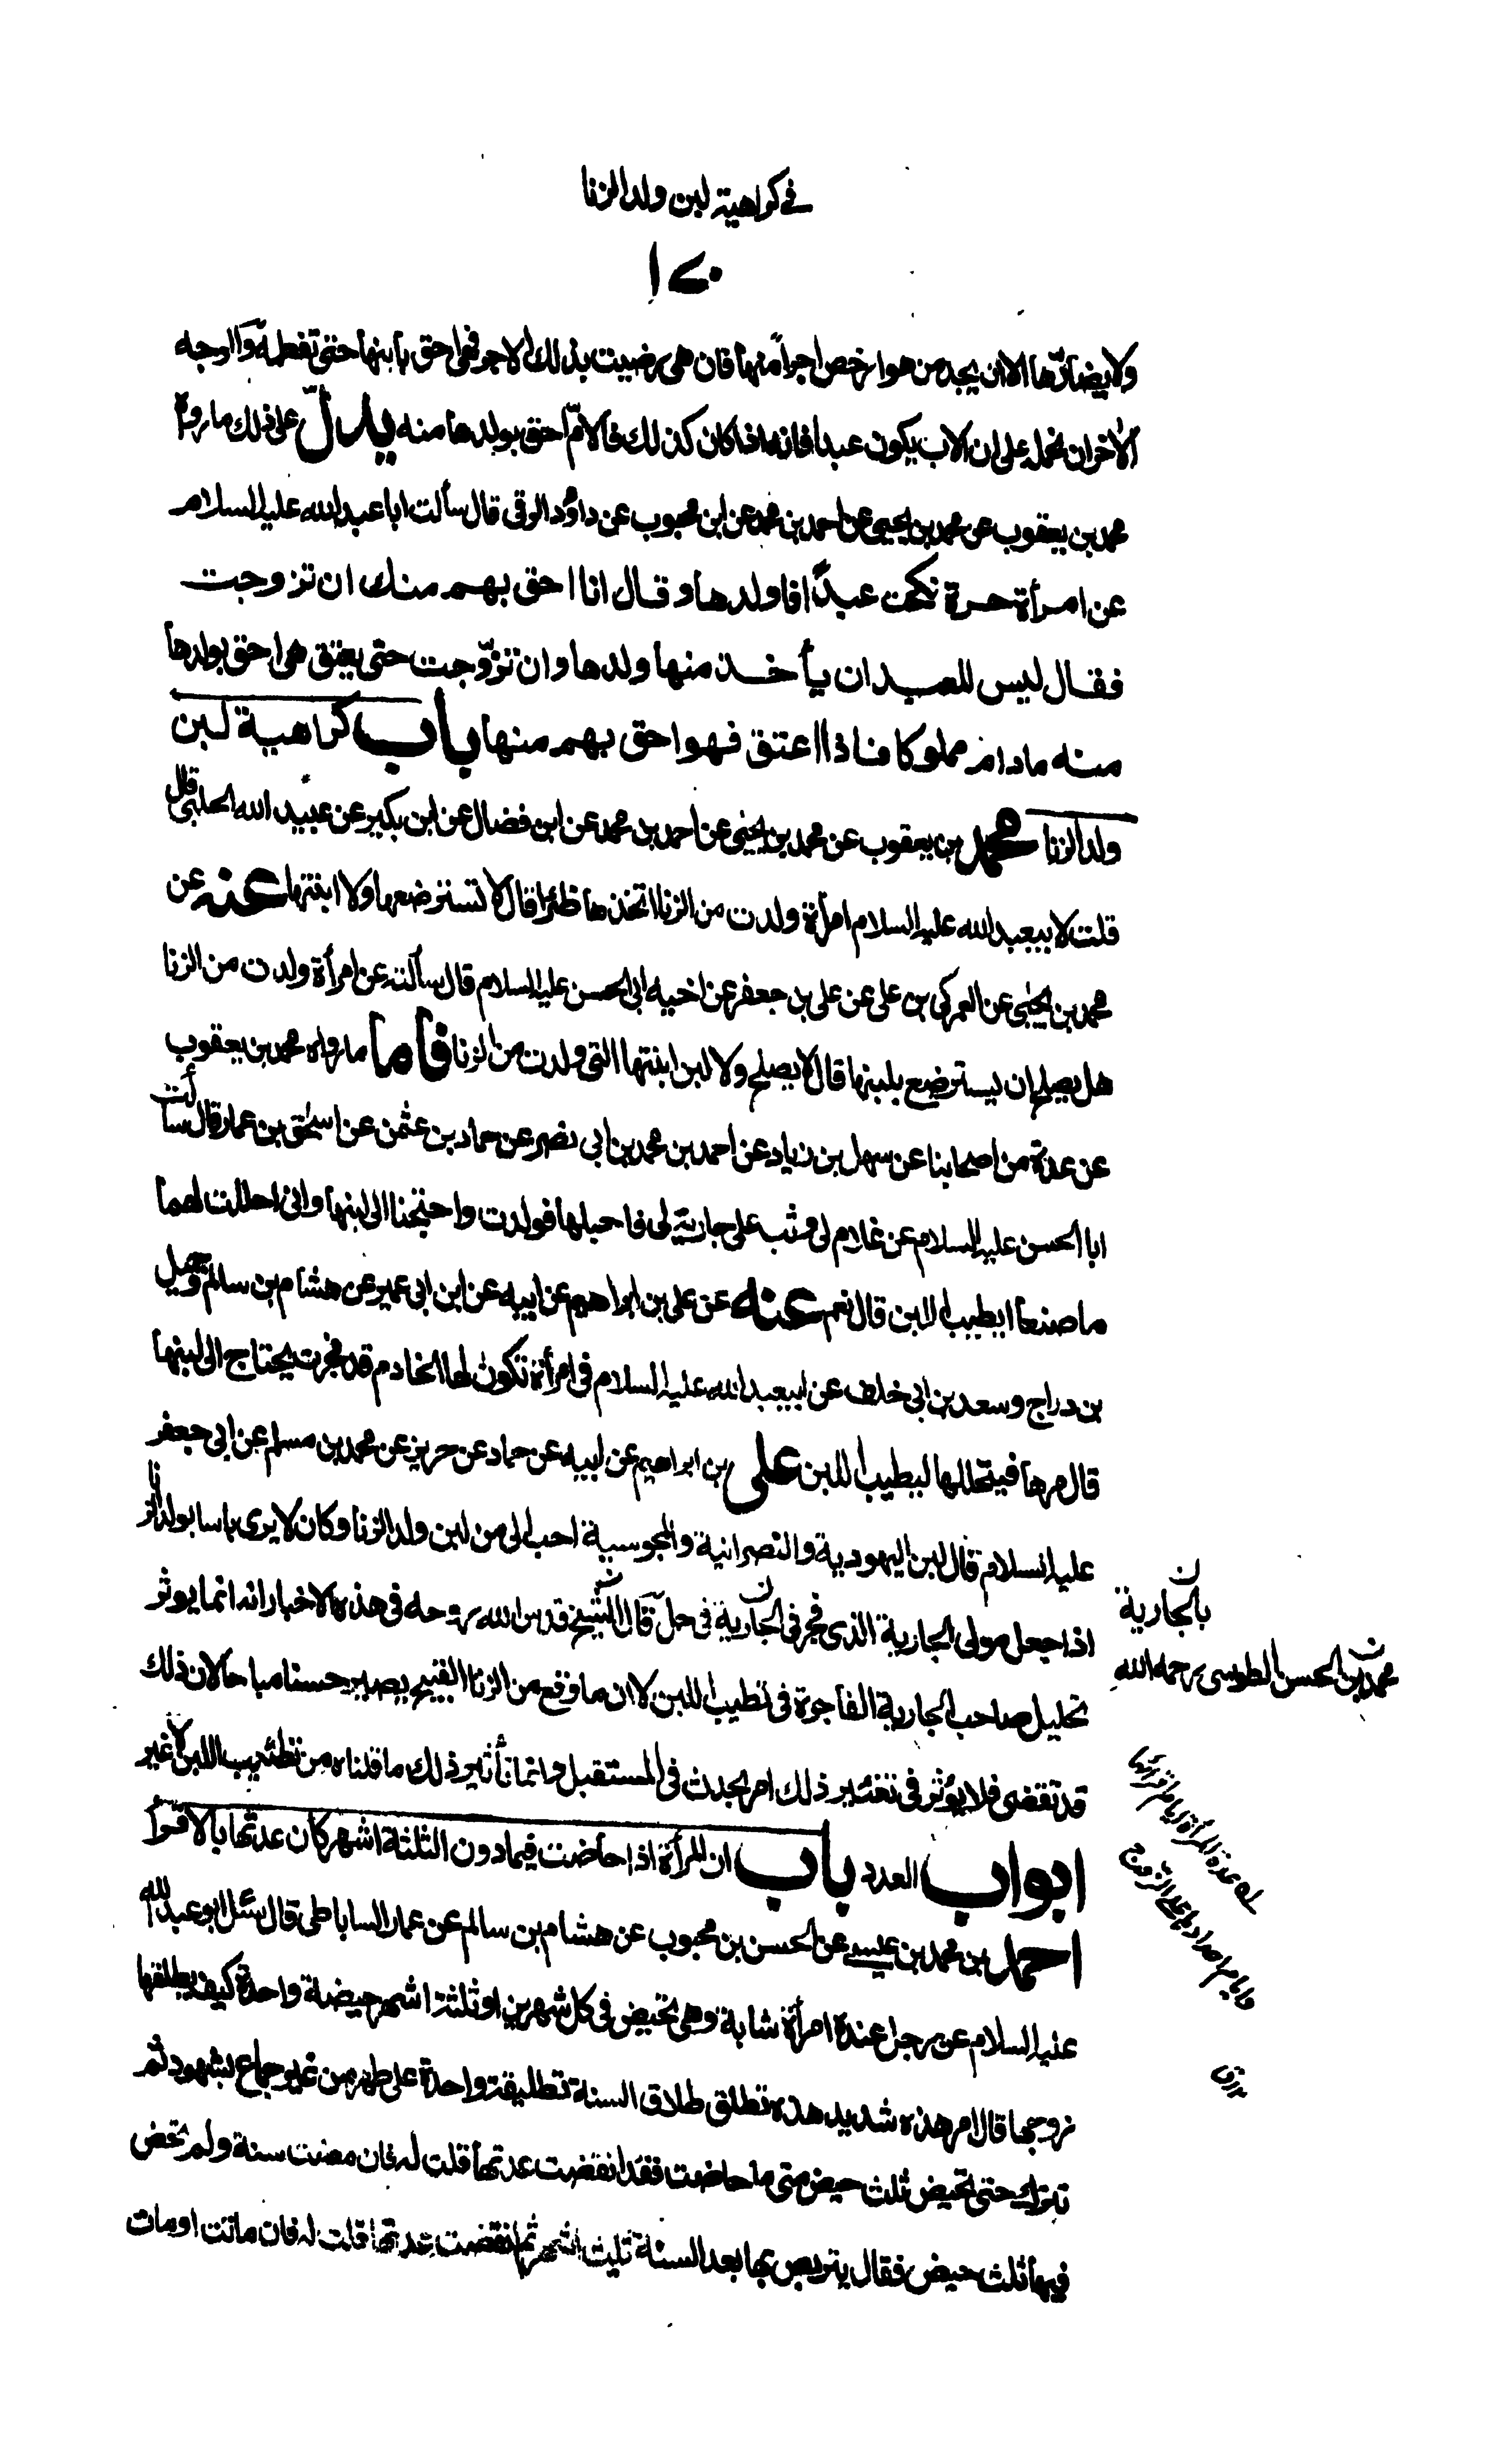 في كراهية لبن ولد الزنا
١٤٠
ولا يضارّها الا ان يجد من هو ارخص اجراً منها فان هى رضيت بذلك الاجر فهى احق بابنها حتى تفطمه والوجه
الآخر ان نحمله على ان الاب يكون عبدا فانه اذا كان كذلك فالامّ احق بولدها منه يدلّ على ذلك ما رواه
محمد بن يعقوب عن محمد بن يحيى عن احمد بن محمد عن ابن محبوب عن داود الرقى قال سألت ابا عبد الله عليه السلام
عن امرأة حرة نكحت عبدًا فاولدها وقال انا احق بهم منك ان تزوجت
فقال ليس للعبد ان يأخذ منها ولدها وان تزوّجت حتى يعتق هى احق بولدها
منه مادام مملوكا فاذا اعتق فهو احق بهم منها باب كراهية لبن
ولد الزنا محمد بن يعقوب عن محمد بن يحيى عن احمد بن محمد عن ابن فضال عن ابن بكير عن عبيد الله الحلبى قال
قلت لابيعبد الله عليه السلام امرأة ولدت من الزنا اتخذها ظئرا قال لا تسترضعها ولا ابنتها عنه عن
محمد بن يحيى عن العمركى بن على عن على بن جعفر عن اخيه ابى الحسن عليه السلام قال سألته عن امرأة ولدت من الزنا
هل يصلح ان يسترضع بلبنها قال لا يصلح ولا لبن ابنتها التى ولدت من الزنا فاما ما رواه محمد بن يعقوب
عن عدة من اصحابنا عن سهل بن زياد عن احمد بن محمد بن ابى نصر عن حماد بن عثمن عن اسحق بن عمار قال سألت
ابا الحسن عليه السلام عن غلام لى وثب على جارية لى فاحبلها فولدت واحتجنا الى لبنها وانى احللت لهما
ما صنعا ايطيب اللبن قال نعم عنه عن على بن ابراهيم عن ابيه عن ابن ابى عمير عن هشام بن سالم وجميل
بن دراج وسعد بن ابى خلف عن ابيعبد الله عليه السلام فى امرأة تكون لها الخادم قد فجرت يحتاج الى لبنها
قال مرها فيتحللها ليطيب اللبن على بن ابراهيم عن ابيه عن حماد عن حريز عن محمد بن مسلم عن ابى جعفر
عليه السلام قال لبن اليهودية والنصرانية والمجوسية احب الى من لبن ولد الزنا وكان لا يرى باسا بولد الزنا
اذا جعل مولى الجارية الذى فجر فى الجارية فى حل قال الشيخ قدس الله روحه فى هذه الاخبار انه انما يوثر
تحليل صاحب الجارية الفاجرة فى تطييب اللبن لا ان ما وقع من الزنا القبيح يصير حسنا مباحا لان ذلك
قد تقضى فلا يؤثر فى تغيير ذلك امر يحدث فى المستقبل وانما تأثير ذلك ما قلناه من تطييب اللبن لا غير
ابواب العدد باب ان المرأة اذا حاضت فيما دون الثلثة اشهر كان عدتها بالاقرا
احمد بن محمد بن عيسى عن الحسن بن محبوب عن هشام بن سالم عن عمار الساباطى قال سئل ابو عبد الله
عليه السلام عن رجل عنده امرأة شابة وهى تحيض فى كل شهرين او ثلثة اشهر حيضة واحدة كيف يطلقها
زوجها قال امر هذه شديد هذه تطلق طلاق السنة تطليقة واحدة على طهر من غير جماع بشهود ثم
تترك حتى تحيض ثلث حيض متى ما حاضت فقد انقضت عدتها قلت له فان مضت سنة ولم تحض
فيها ثلث حيض فقال يتربص بها بعد السنة ثلث اشهر ثم انقضت عدتها قلت له فان ماتت او مات
بالجارية ن
محمد بن الحسن الطوسى رحمه الله ن
عدة المرأة ايام اقرائها
وايام احدادها على الزوج